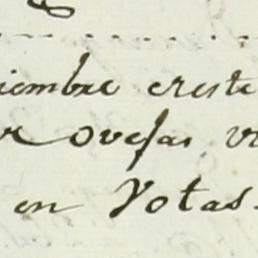 iembre creste
r ovejas v
en Votas.